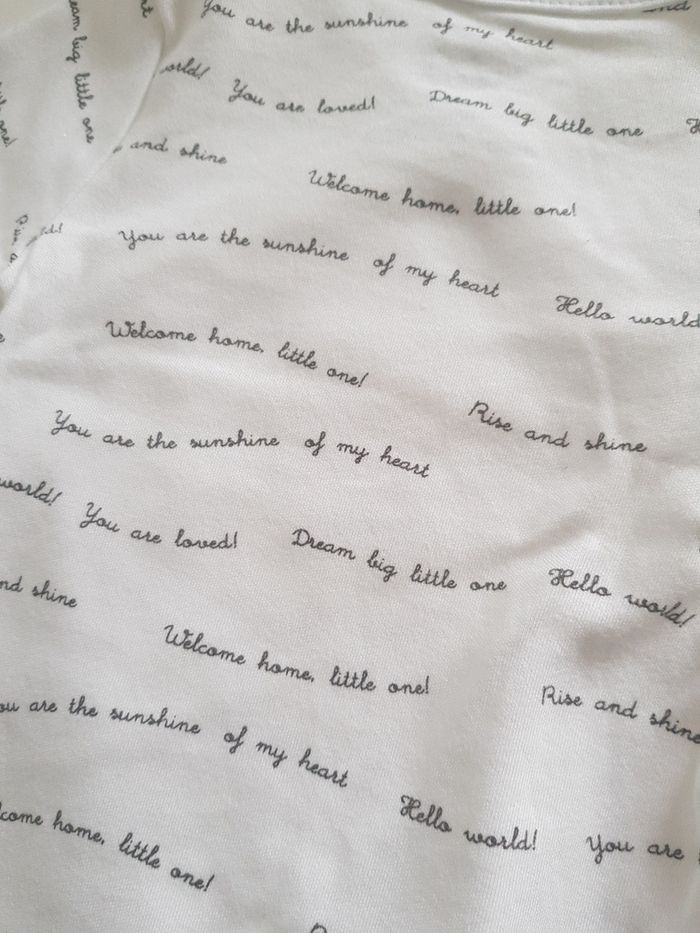 You are the sunshine of my heart
and
eam big little one
orld! You are loved! Dream big little one
and shine
Welcome home, little one!
You are the sunshine of my heart
Hello world
Welcome home, little one!
Rise and shine
You are the sunshine of my heart
world! You are loved! Dream big little one Hello world!
nd shine
Welcome home, little one!
Rise and shine
ou are the sunshine of my heart
Hello world! You are
lcome home, little one!